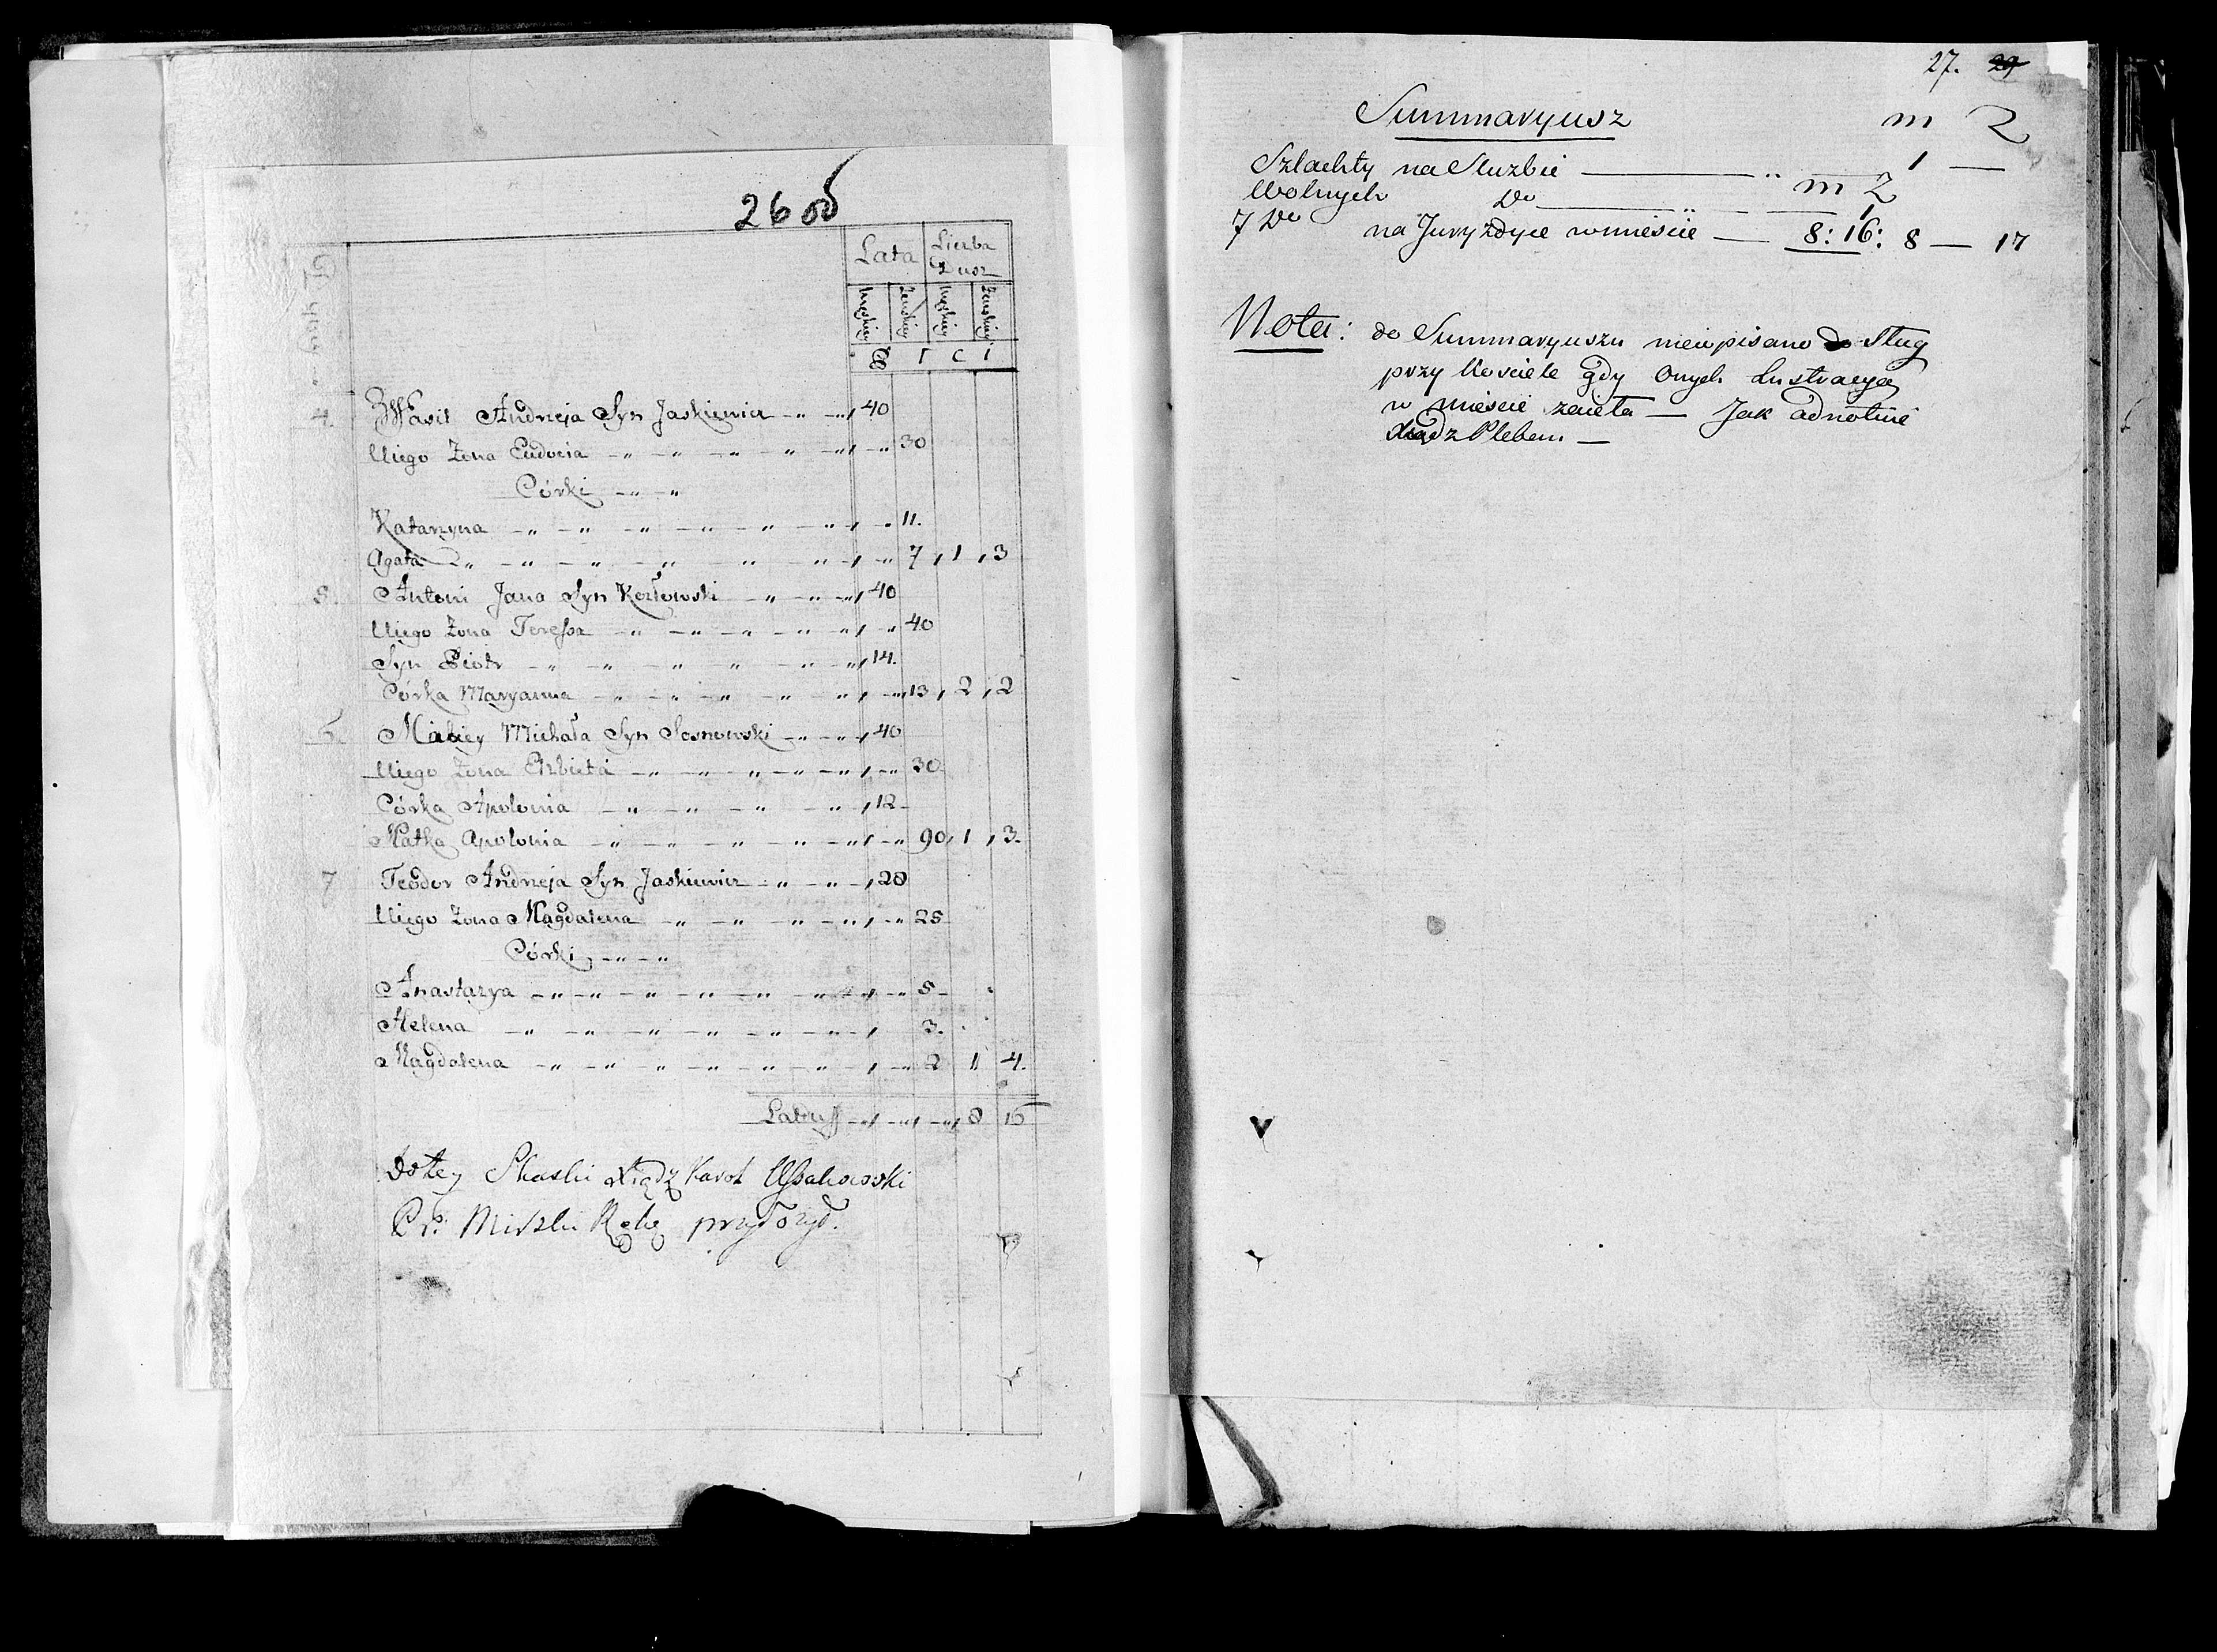 26 об
Lata Liczba Dusz
Męskiey Żenskiey Męskiey Żenskiey
4. Wasil Andrzeja Syn Jaskiewicz 40
Uiego Żona Eudocia 30
Córki
Katarzyna 11.
Agata 7, 1, 3
5. Antoni Jana Syn Kozłowski 40
Uiego Żona Teressa 40
Syn Piotr 14.
Córka Maryanna 13, 2, 2
6. Maciey Michała Syn Sosnowski 40
Uiego Żona Elżbieta 30
Córka Apolonia 12
Matka Apolonia 90, 1, 3.
7 Teodor Andrzeja Syn Jaskiewicz 28
Uiego Żona Magdalena 25
Córki
Anastazya 5
Helena 3.
Magdalena 2 1 4.
Latus 8 16
Do tey Skaski Xiądz Karol
Rękę przyłożył.
27. 29
Summaryusz m Z
Szlachty na Służbie — 1 —
Wolnych Do — m Z
7 Do na Juryzdyce w mieście — 8: 16: 8 — 17
1
Nota: do Summaryuszu niewpisano Sług
przy Kościele gdy Onych Lustracya
w mieście zeszła — Jak adnotuie
Xiądz Pleban. —